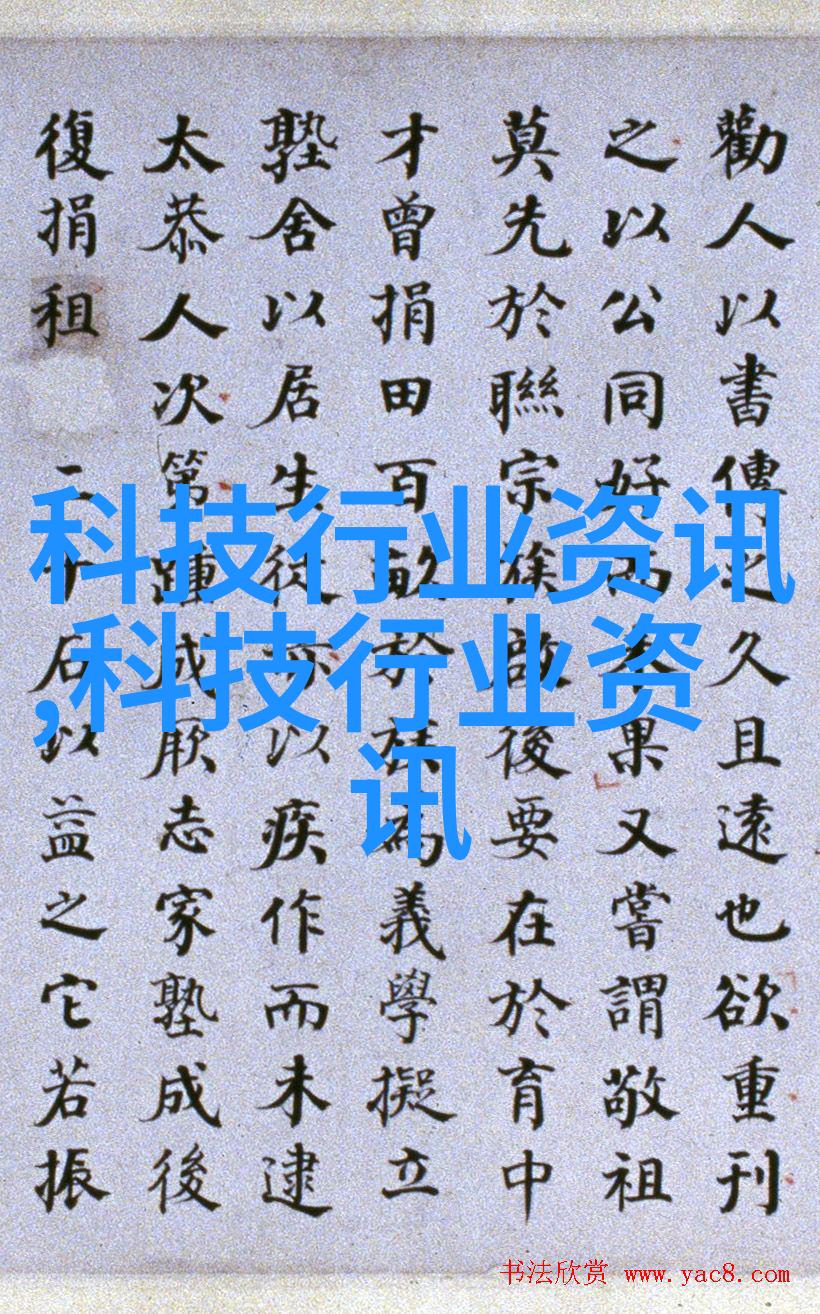 勸人以書傳之久且遠也欲重刊
之以公同好而未果又嘗謂敬祖
莫先於聯宗族啟後要在於育中
才曾捐田百畝於族為義學擬立
塾舍以居生徒亦以疾作而未逮
太恭人次第踵成厥志家塾成後
復捐租二千石以益之它若振
科技行业资讯
,科技行业资
讯
书法欣赏 www.yac8.com